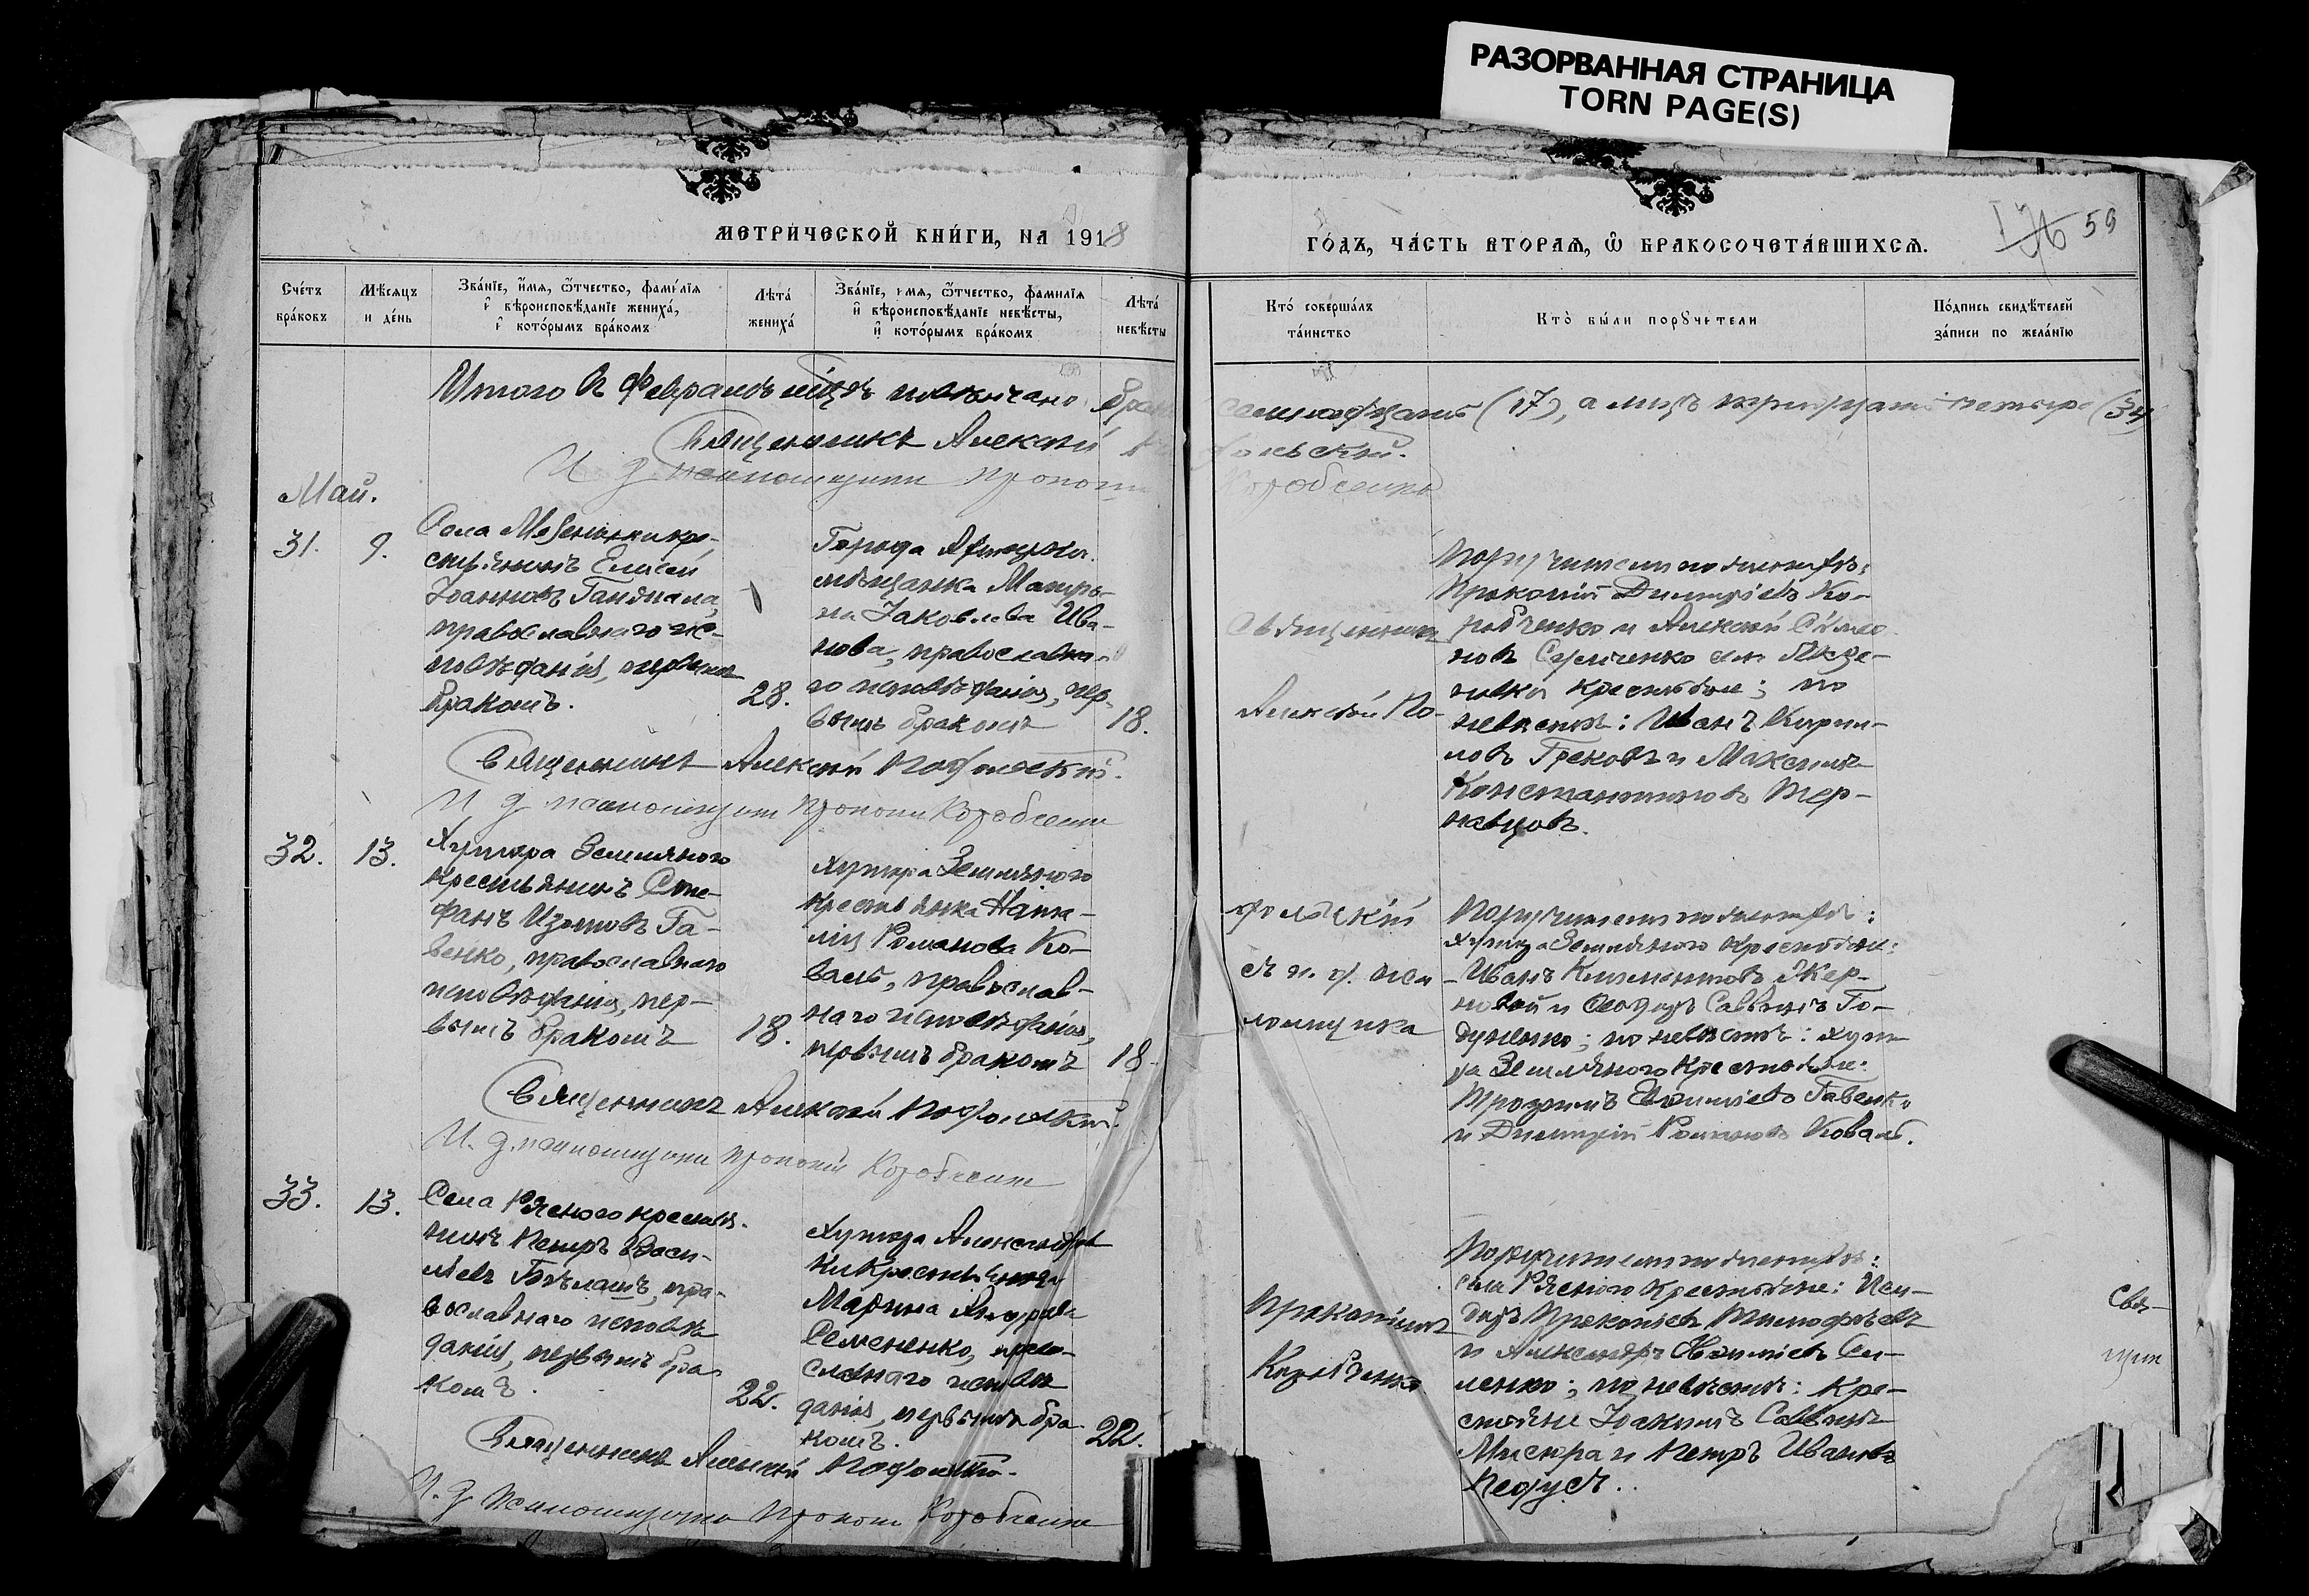 РАЗОРВАННАЯ СТРАНИЦА
TORN PAGE(S)
МЕТРИ́ЧЕСКОЙ КНИ́ГИ, НА 1918
ГО́ДЪ, ЧА́СТЬ ВТОРА́Ѧ, Ѽ БРАКОСОЧЕТА́ВШИХСѦ.
59
Сче́тъ
бра́ковъ
Мѣ́сѧцъ
и де́нь
Зва́нїе, и́мѧ, ѻ҆́тчество, фами́лїѧ
и҆ вѣроисповѣ́данїе жениха́,
и҆ кото́рымъ бра́комъ
Лѣта́
жениха́
Зва́нїе, имѧ, ѻ҆́тчество, фамилїѧ
и҆ вѣроисповѣ́данїе невѣ́сты,
и҆ кото́рымъ бра́комъ
Лѣта́
невѣ́сты
Кто́ соверша́лъ
та́инство
Кто̀ бы́ли порꙋчители
По́дпись свидѣ́телей
за́писи по жела́нїю
Итого въ Февралѣ мцѣ повѣнчано брак
семнадцать (17), а лицъ тридцать четыре (34)
Священникъ Алексѣй
дольскій.
И д псаломщика Прокопій
Коробченко
Май.
31.
9.
Села Мезеновки кре-
стьянинъ Елисей
Іоанновъ
православнаго ис-
повѣданія, первымъ
бракомъ.
28.
Города
мѣщанка Матро-
на Іаковлева Ива-
нова, православна-
го исповѣданія, пер-
вымъ бракомъ
18.
Поручители по женихѣ:
Прокопій Димитріевъ Ко-
робченко и Алексѣй Симео
новъ
крестьяне; по
невѣстѣ: Иванъ Кирил-
ловъ Грековъ и Максимъ
Константиновъ Тер-
навцовъ.
Священникъ Алексѣй Подольскій.
И д псаломщика Прокопій Коробченко
32.
13.
Хутора Земляного
крестьянинъ Сте-
фанъ Изотовъ Га-
венко, православнаго
исповѣданія, пер-
вымъ бракомъ
18.
Хутора Земляного
крестьянка Ната-
лія Романова Ко-
валь, православ-
наго исповѣданія,
первымъ бракомъ
18.
Священникъ
Алексѣй По-
дольскій
съ и. д. пса
ломщика
Прокопіемъ
Коробченко
Поручители по женихѣ:
Хутора Земляного крестьяне:
Иванъ Климентовъ Жер-
новой и Савинъ Го-
; по невѣстѣ: хуто
ра Земляного крестьяне:
Трофимъ Гавенко
и Димитрій Романовъ Коваль.
Священникъ Алексѣй Подольскій.
И. д. псаломщика Прокопій Коробченко
33.
13.
Села Рясного крестья-
нинъ Петръ Васи-
ліевъ пра-
вославнаго исповѣ
данія, первымъ бра-
комъ.
22.
Хутора Александров
ки крестьянка
Марина
Семененко, право-
славнаго исповѣ
данія, первымъ бра-
комъ.
22.
Поручители по женихѣ:
села Рясного крестьяне:
Прокопіевъ Тимофѣевъ
и Александръ
; по невѣстѣ: кре-
стьяне Іоакимъ Саввинъ
Мисюра и Петръ Ивановъ
Педусь.
Свя-
Священникъ Алексѣй Подольскій.
И. д. псаломщика Прокопій Коробченко